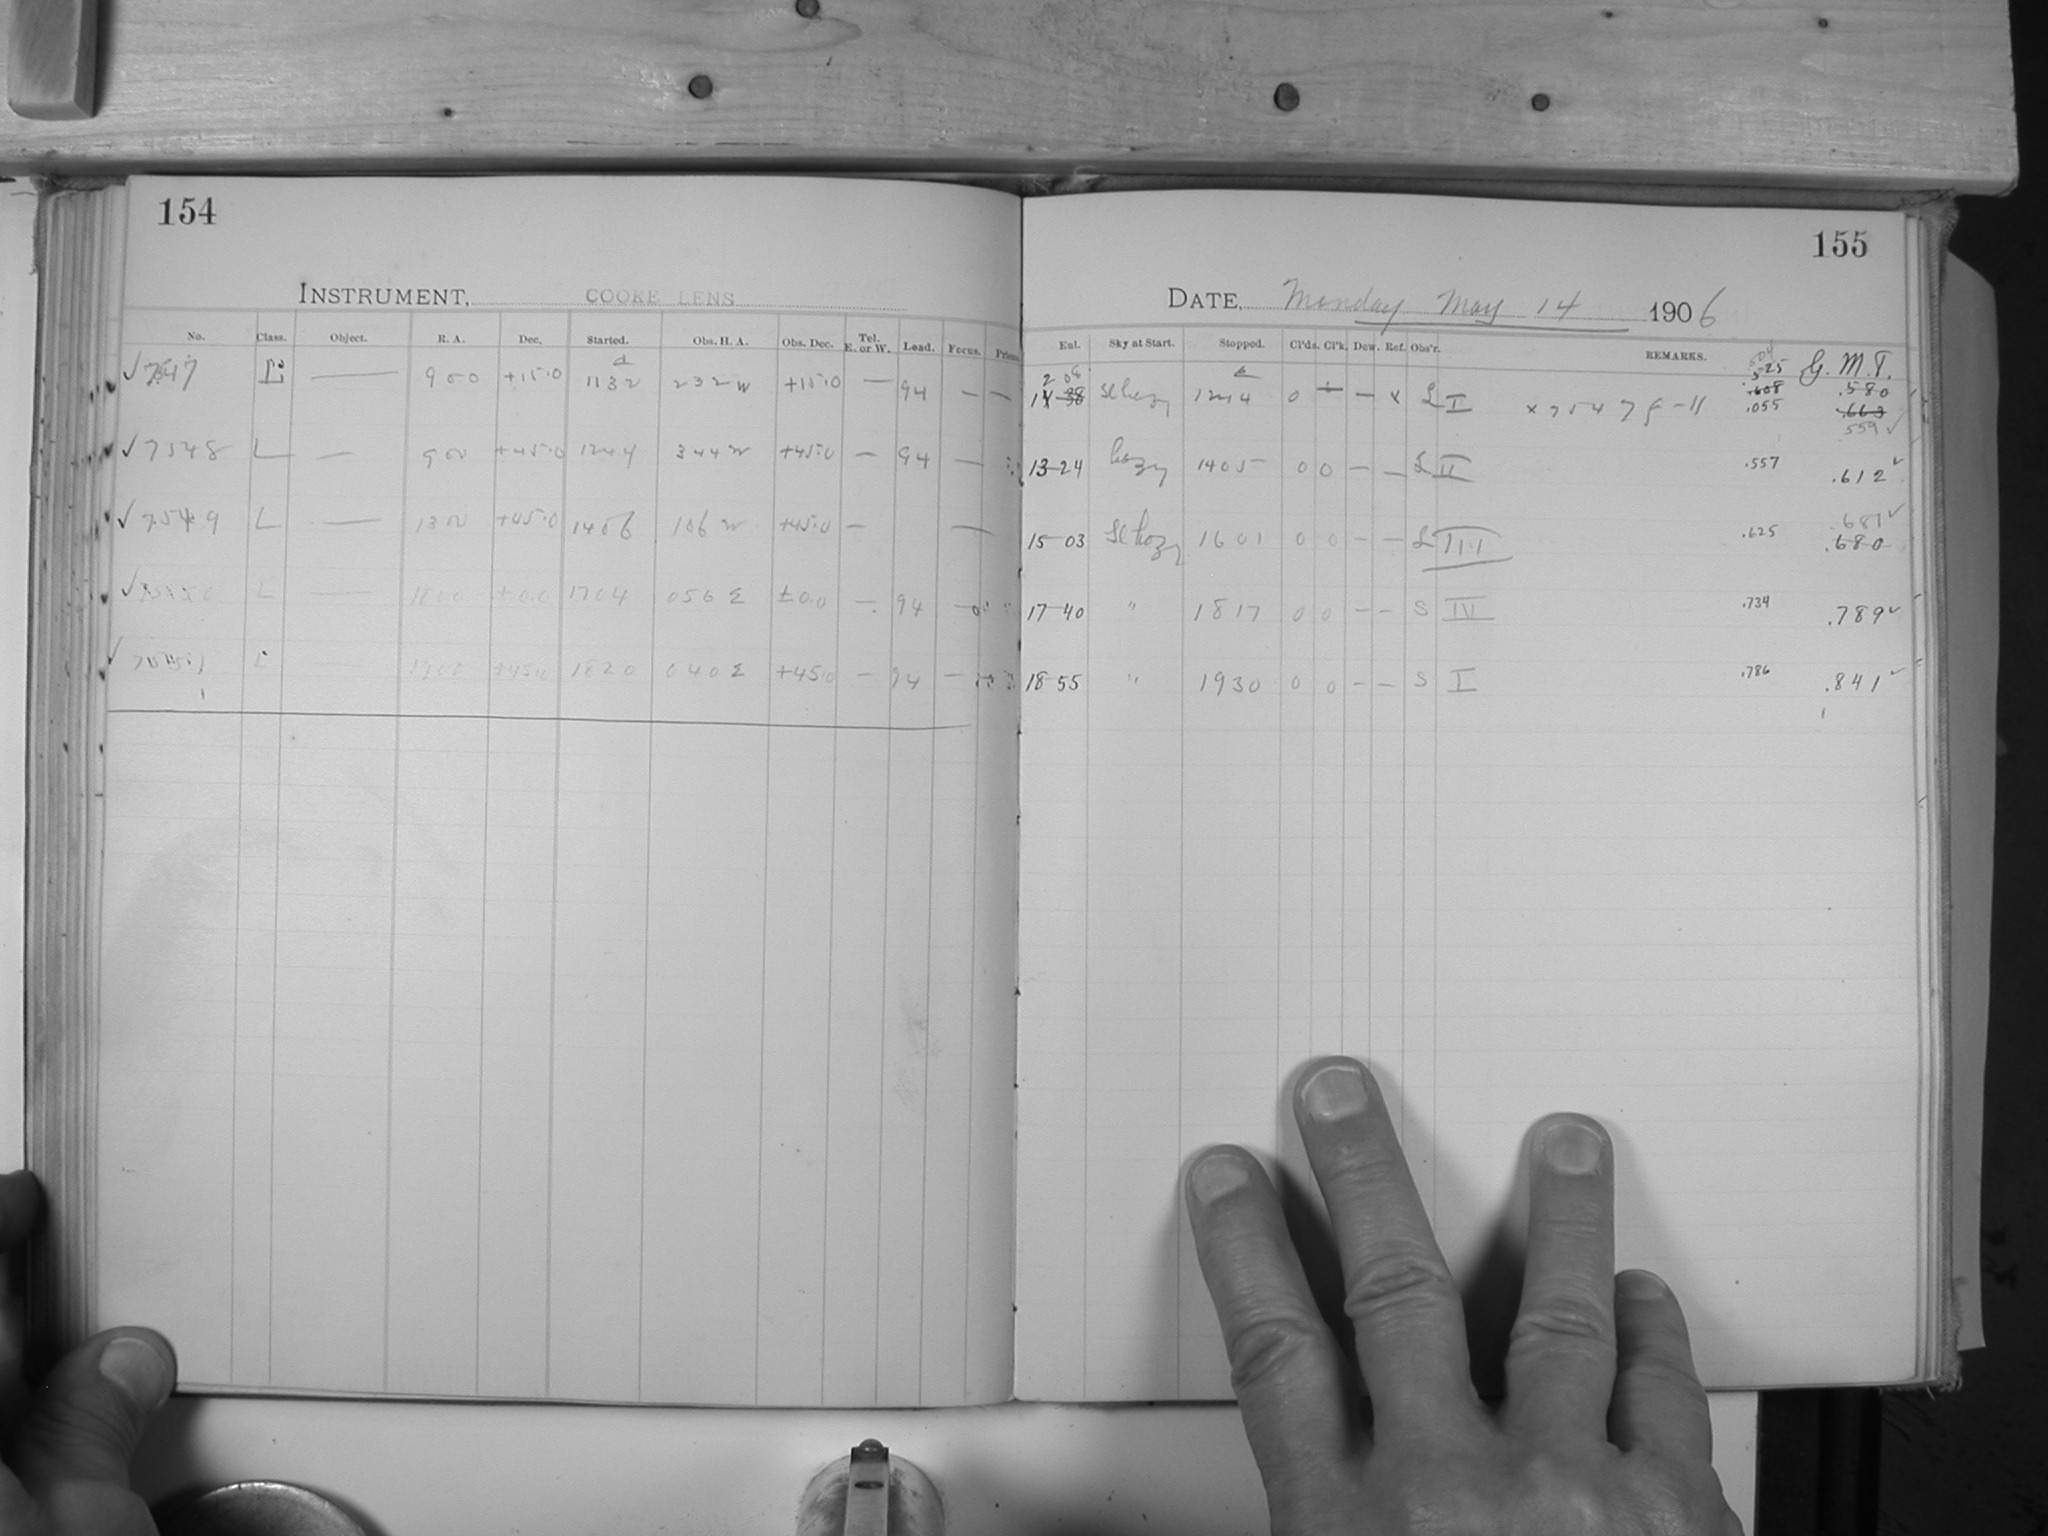 154
INSTRUMENT, COOKE LENS
No. Class. Object. R. A. Dec. Started. Obs. H. A. Obs. Dec. Tel. E. or W. Load. Focus. Prism.
✓ 7547 L — 9 00 +15.0 1132 232 W +15.0 — 94 — —
✓ 7548 L — 900 +45.0 1244 344 W +45.0 — 94 —
✓ 7549 L — 1300 +45.0 1406 106 W +45.0 — —
✓ L — 1800 ±0.0 1704 056 E ±0.0 — 94 —
✓ 7551 L — 1900 +45.0 1820 040 E +45.0 — 94 —
155
DATE, Monday May 14 1906
Exl. Sky at Start. Stopped. Cl'ds. Cl'k. Dew. Ref. Obs'r. REMARKS. G. M. T.
Sl hazy 1214 0 — x L I x 7547 F-11 .525 .580
.608 .055 .663
.559 ✓
13-24 hazy 1405 0 0 — — L II .557 .612 ✓
15-03 Sl hazy 1601 0 0 — — L III .625 .681 ✓
.680
17-40 " 1817 0 0 — — S IV .734 .789 ✓
18-55 " 1930 0 0 — — S I .786 .841 ✓